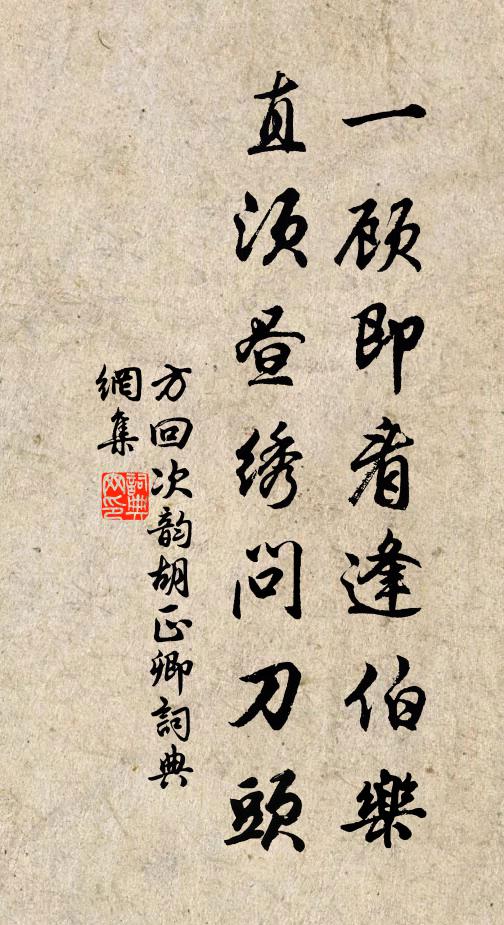 一顾即看逢伯樂
直须昼绣問刀頭
方回次韵胡正卿詞典
網集
詞典網印